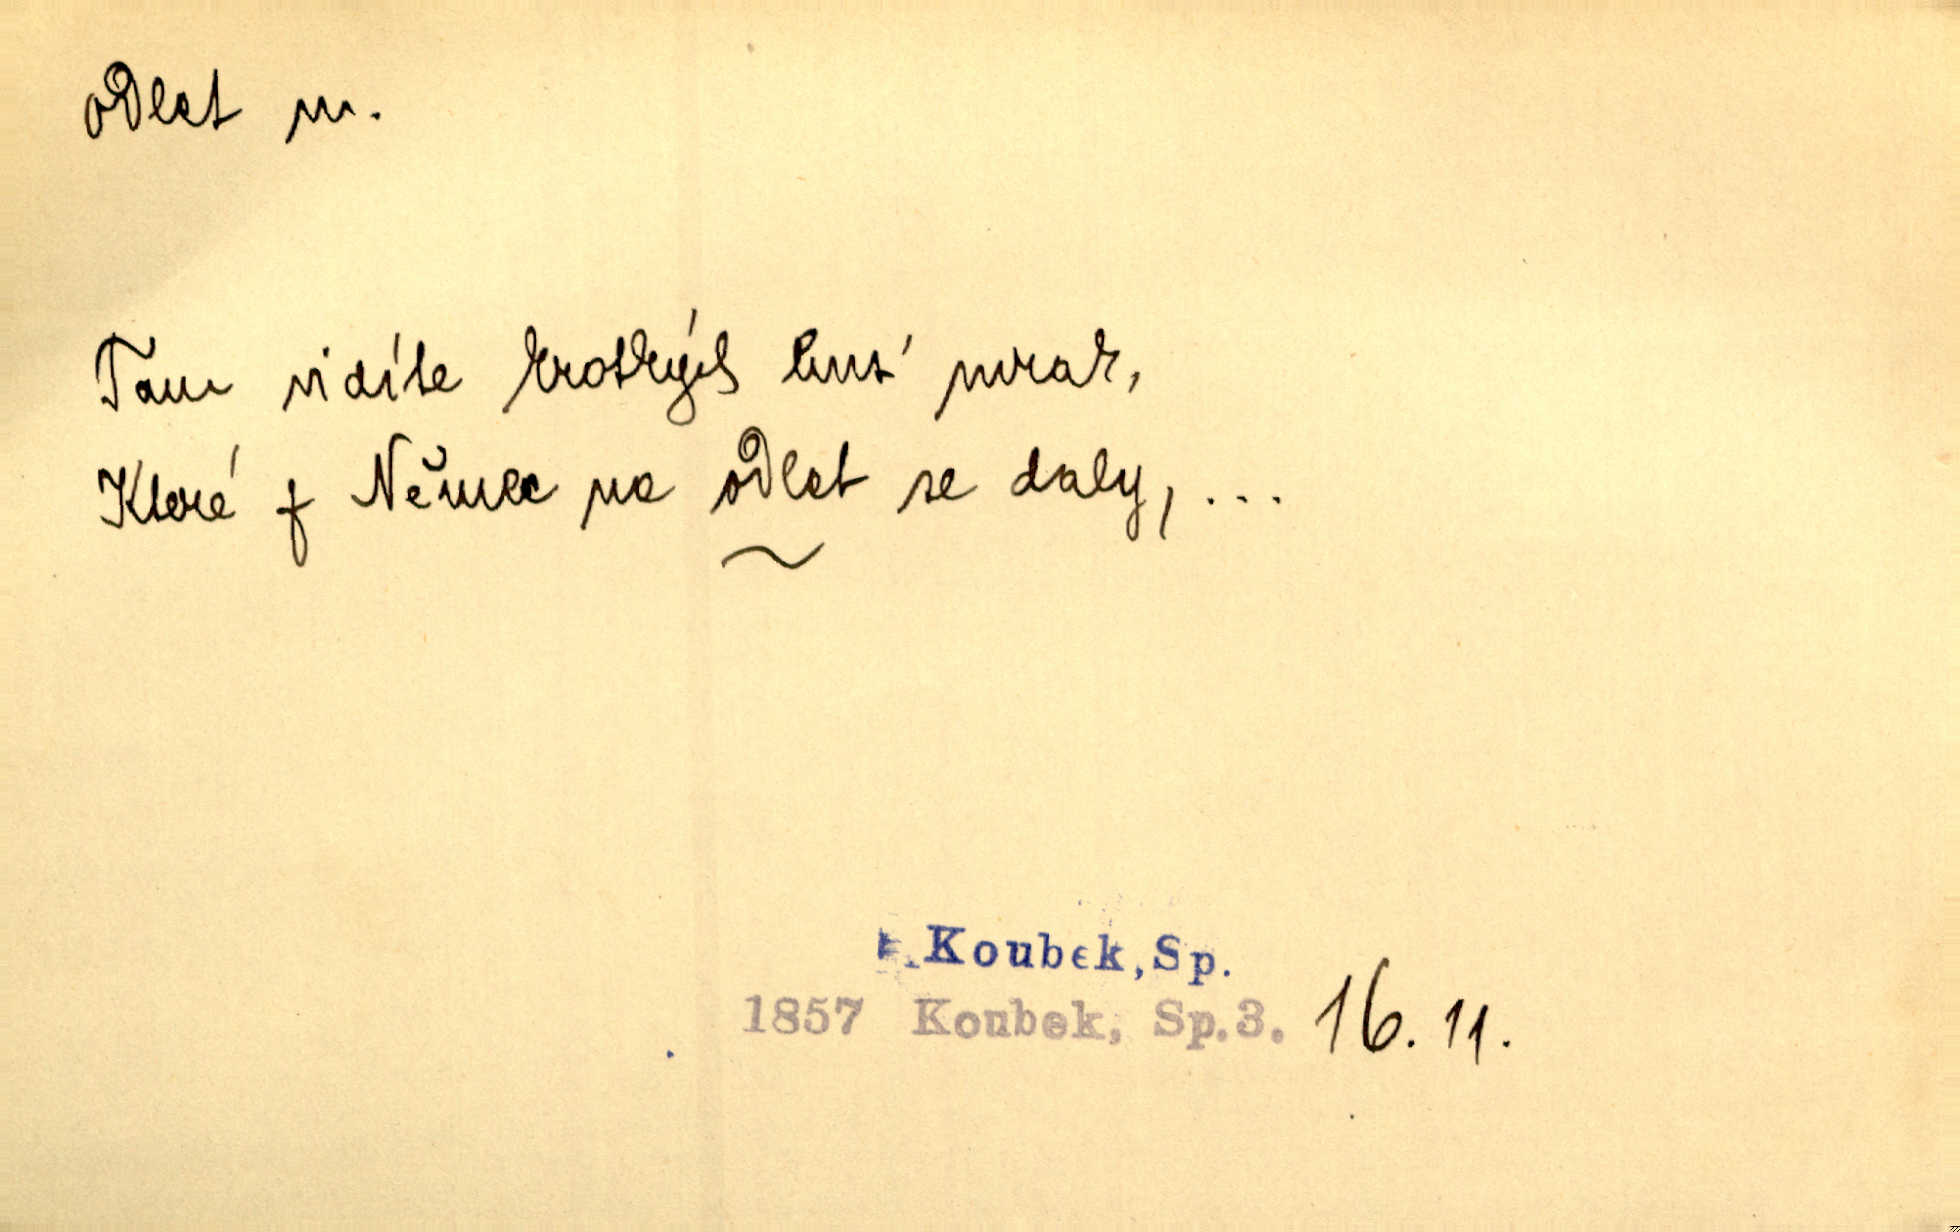 odlet m.
Tam vidíte krotkých husí mrak,
Které z Němec na odlet se daly, ...
Koubek, Sp.
1857 Koubek, Sp.3. 16. 11.